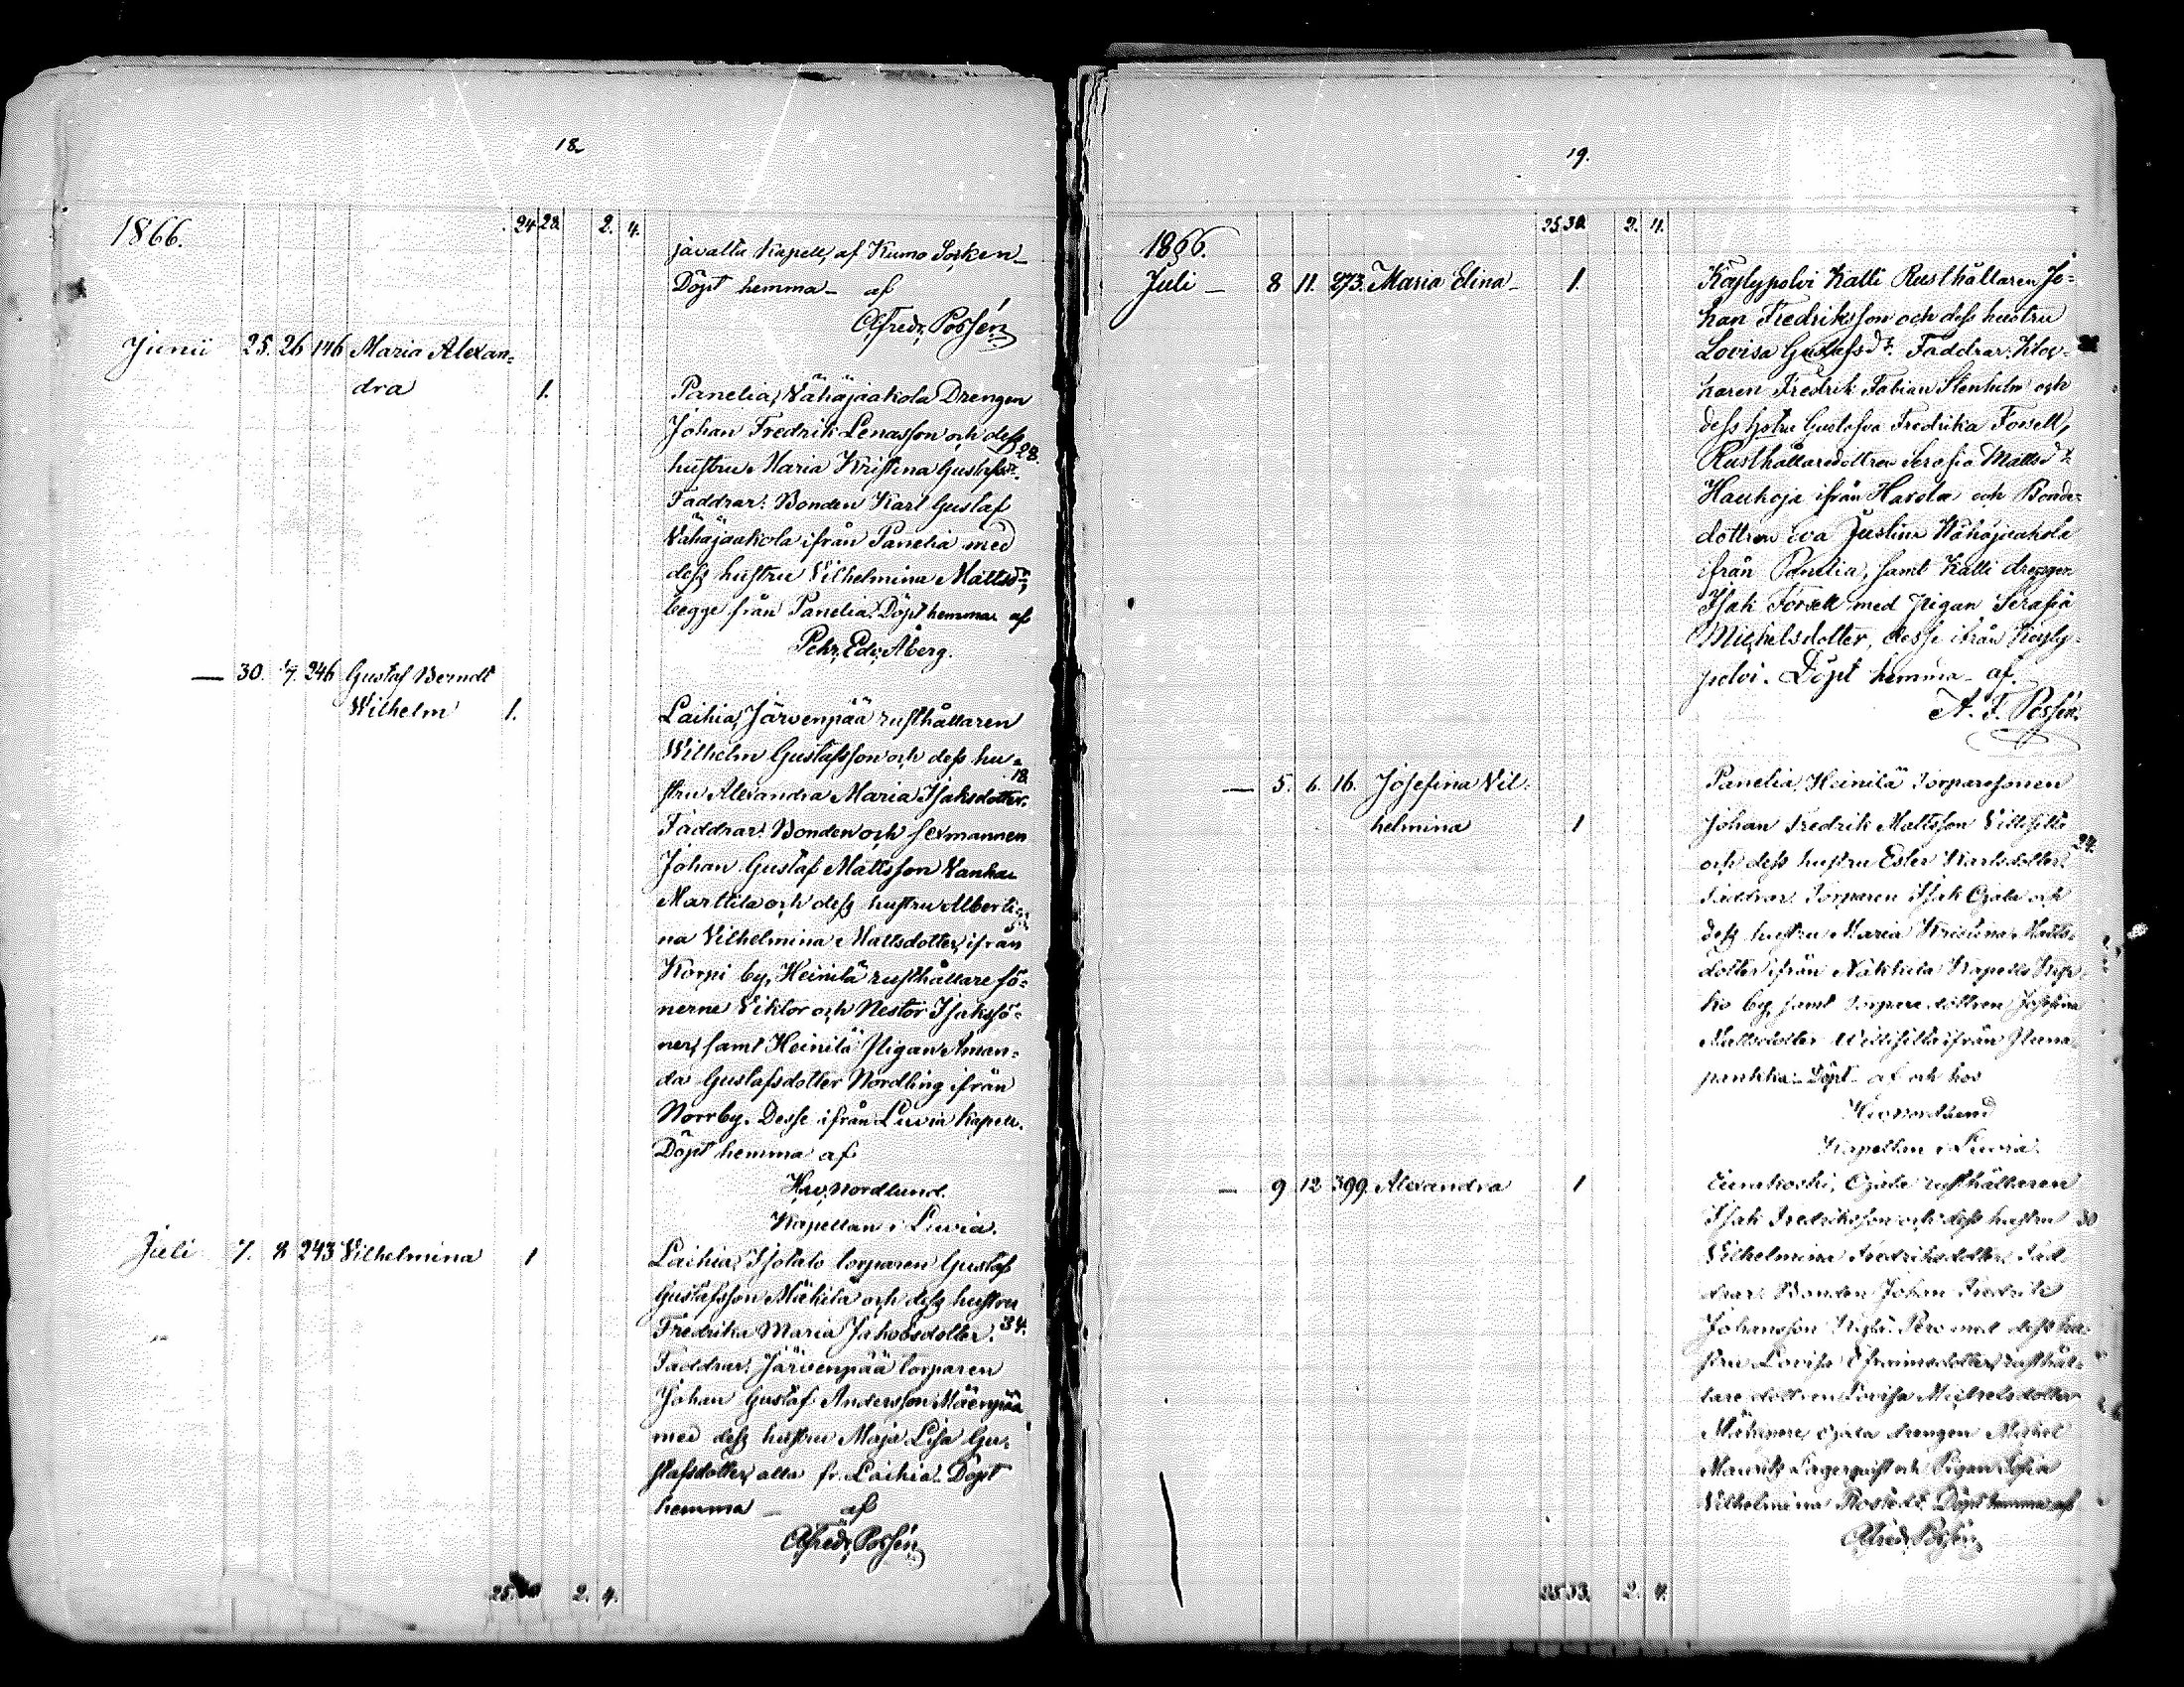 18.
1866.
24 28. 2. 4.
javalta Kapell, af Kumo Socken_
Döpt hemma_ af
Alfredr, Possén
Junii 25. 26 146 Maria Alexan=
dra 1.
Panelia, Vähäjaakola Drengen
Johan Fredrik Lenasson och dess
28.
hustru Maria Kristina Gustafsdr.
Faddrar: Bonden Karl Gustaf
Vähäjaakola ifrån Panelia med
dess hustru Vilhelmina Mattsdr,
begge från Panelia. Döpt hemma af
Pehr, Edv, Åberg.
— 30. 7. 246 Gustaf Berndt
Wilhelm 1.
Laihia, Järvenpää rusthållaren
Wilhelm Gustafsson och dess hu=
18.
stru Alexandra Maria Isaksdotter.
Faddrar: Bonden och sexmannen
Johan Gustaf Mattsson Vanha
Marttila och dess hustru Alberti=
na Vilhelmina Mattsdotter, ifrån
Korpi by, Heinilä rusthållare sö=
nerne Viktor och Nestor Isakssö=
ner, samt Heinilä Pigan Aman=
da Gustafsdotter Nordling ifrån
Norrby. Desse ifrån Luvia Kapell.
Döpt hemma af
Nordlund.
Kapellan i Luvia.
Juli 7. 8 243 Vilhelmina 1
Laihia, Isotalo torparen Gustaf
Gustafsson Mäkilä och dess hustru
Fredrika Maria Jakobsdotter. 34.
Faddrar: Järvenpää torparen
Johan Gustaf Andersson Mäenpää
med dess hustru Maja Lisa Gu=
stafsdotter, alla fr. Laihia. Döpt
hemma _ af
Alfredr, Possén
25. 30 2. 4.
19.
1866.
25 30 2. 4.
Juli — 8 11. 273. Maria Elina_ 1.
Köylypolvi Kalli Rusthållaren Jo=
han Fredriksson och dess hustru
Lovisa Gustafsdr. Faddrar: Kloc=
karen Fredrik Fabian Stenholm och
dess hstru Gustafva Fredrika Forsell,
Rusthållaredottren Serafia Mattsdr
Hauhoja ifrån Harola och Bonde=
dottren Eva Justina Vähäjaakola
ifrån Panelia, samt Kalli drengen
Isak Forsell med Pigan Serafia
Michelsdotter, desse ifrån Köyly=
polvi. Döpt hemma_ af.
A. F. Possén.
— 5. 6. 16. Josefina Vil=
helmina 1
Panelia, Heinilä Torparesonen
Johan Fredrik Mattsson Villisilta
24.
och dess hustru Ester Karlsdotter.
Faddrar: Torparen Isak Ojala och
dess hustru Maria Kristina Matts=
dotter ifrån Nakkila Kapells
by, samt Torpare dottren Josefina
Mattsdotter Willisilta ifrån
Döpt_ af och hos
Nordlund
Kapellan i Luvia.
— 9 12 399. Alexandra 1
Eurakoski, Ojala rusthållaren
Isak Fredriksson och dess hustru 30
Vilhelmina Fredriksdotter. Fad
drar: Bonden Johan Fredrik
Johansson med dess hu=
stru Lovisa Efraimsdotter, rusthål=
lare dottren Lovisa Michelsdotter
Ojala drengen Michel
Mauritz Lagerqvist och Pigan Sofia
Vilhelmina Döpt hemma af
Alfredr, Possén
25 33. 2. 4.